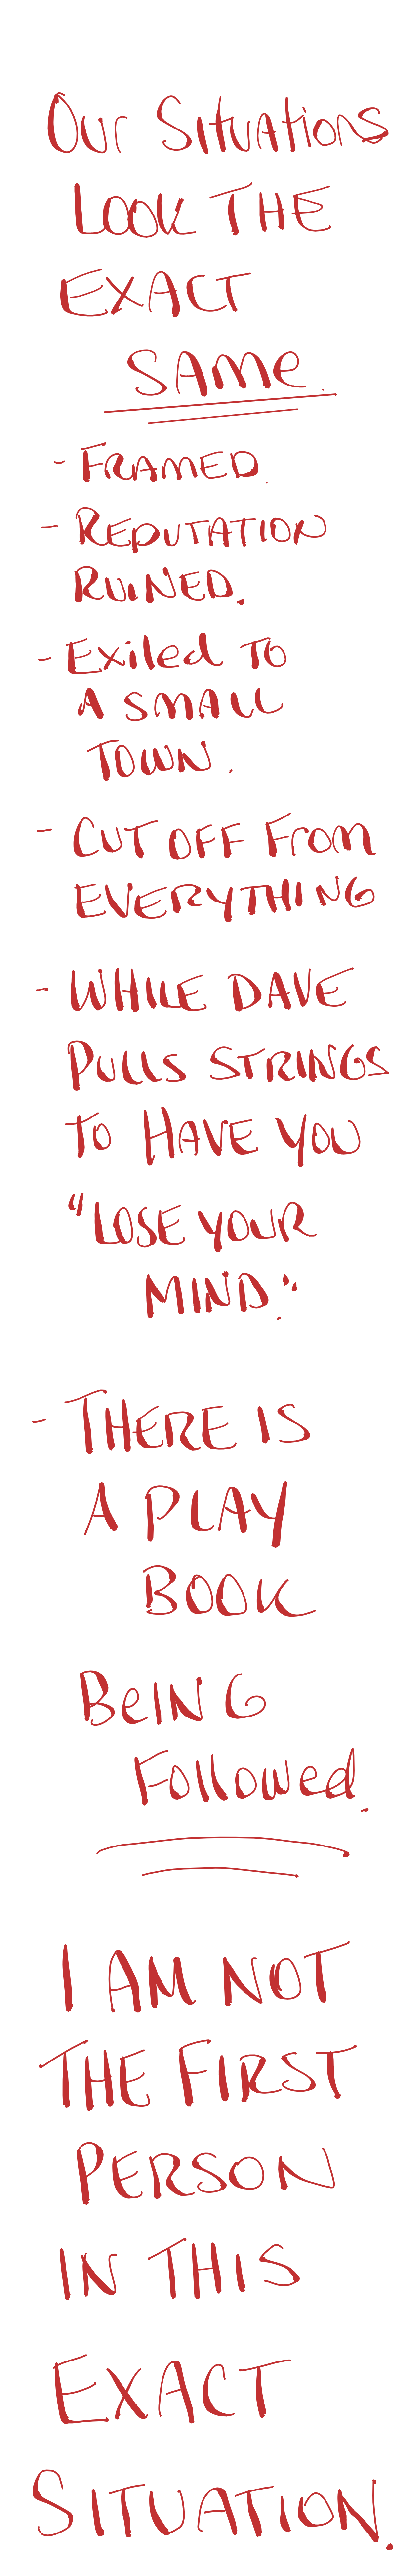 Our Situations
Look THE
EXACT
SAMe.
- FRAMED.
- REPUTATION
RUINED.
- Exiled TO
A SMALL
TOWN.
- CUT OFF From
EVERYTHING
- WHILE DAVE
PULLS STRINGS
TO HAVE YOU
"LOSE YOUR
MIND."
- THERE IS
A PLAY
BOOK
BeING
Followed.
I AM NOT
THE FIRST
PERSON
IN THIS
EXACT
SITUATION.